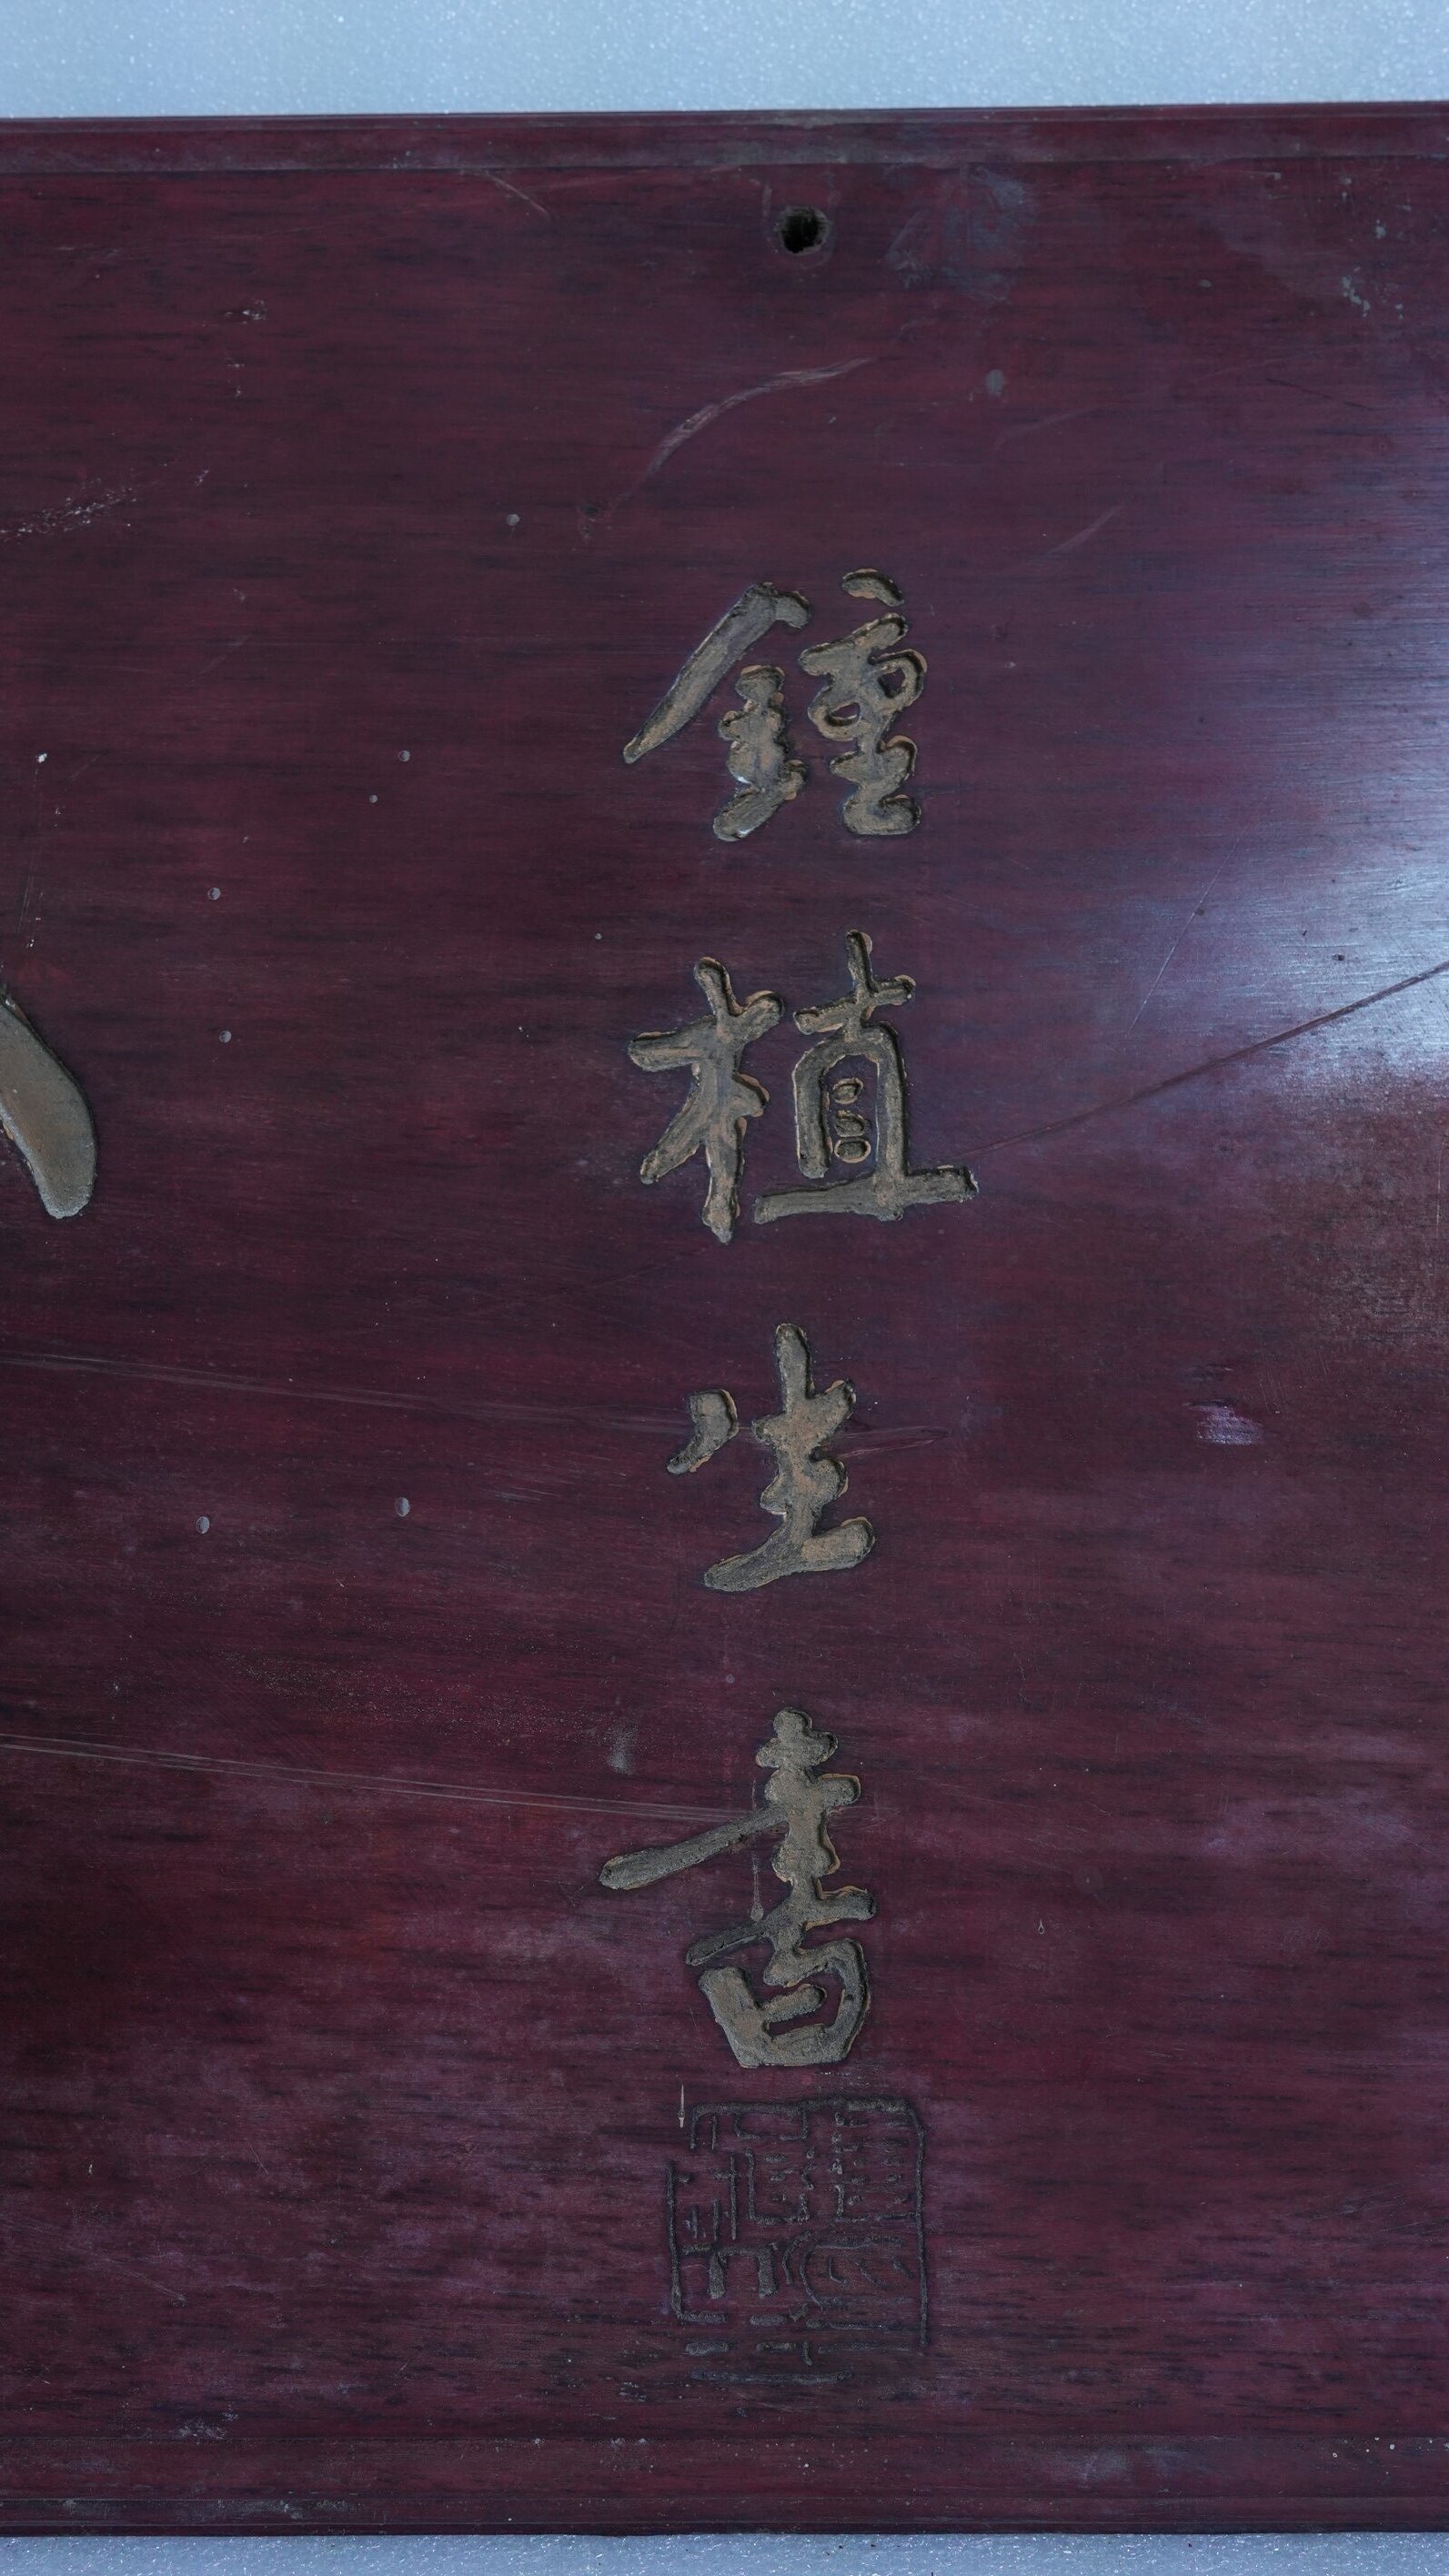 鍾植生書